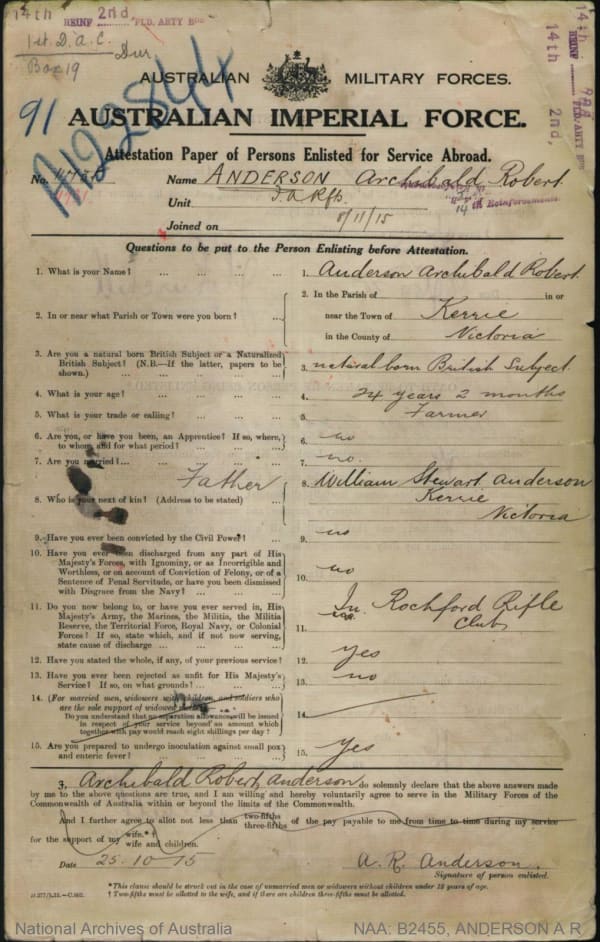 14th REINF 2nd FLD. ARTY BDE
1st D.A.C.
Box 19
14th REINF 2nd FLD. ARTY BDE
14th 2nd,
91
AUSTRALIAN MILITARY FORCES.
AUSTRALIAN IMPERIAL FORCE.
Attestation Paper of Persons Enlisted for Service Abroad.
No. Name ANDERSON Archibald Robert
Unit
14th Reinforcements
Joined on 8/11/15
Questions to be put to the Person Enlisting before Attestation.
1. What is your Name? ... ... ... ... 1. Anderson Archibald Robert
2. In or near what Parish or Town were you born? ... 2. In the Parish of in or
near the Town of Kerrie
in the County of Victoria
3. Are you a natural born British Subject or a Naturalized
British Subject? (N.B.—If the latter, papers to be
shown.) ... ... ... ... 3. natural born British Subject
4. What is your age? ... ... ... ... 4. 24 years 2 months
5. What is your trade or calling? ... ... ... 5. Farmer
6. Are you, or have you been, an Apprentice? If so, where,
to whom, and for what period? ... ... ... 6. no
7. Are you married? ... ... ... ... 7. no.
Father
8. Who is your next of kin? (Address to be stated) ... 8. William Stewart Anderson
Kerrie
Victoria
9. Have you ever been convicted by the Civil Power? ... 9. no
10. Have you ever been discharged from any part of His
Majesty's Forces, with Ignominy, or as Incorrigible and
Worthless, or on account of Conviction of Felony, or of a
Sentence of Penal Servitude, or have you been dismissed
with Disgrace from the Navy? ... ... ... 10. no
11. Do you now belong to, or have you ever served in, His
Majesty's Army, the Marines, the Militia, the Militia
Reserve, the Territorial Force, Royal Navy, or Colonial
Forces? If so, state which, and if not now serving,
state cause of discharge ... ... ... 11. In Rochford Rifle
Club
12. Have you stated the whole, if any, of your previous service? 12. yes
13. Have you ever been rejected as unfit for His Majesty's
Service? If so, on what grounds? ... ... ... 13. no
14. (For married men, widowers with children, and soldiers who
are the sole support of widowed mother)—
Do you understand that no separation allowance will be issued
in respect of your service beyond an amount which
together with pay would reach eight shillings per day? 14.
15. Are you prepared to undergo inoculation against small pox
and enteric fever? ... ... ... ... 15. Yes
I, Archibald Robert Anderson, do solemnly declare that the above answers made
by me to the above questions are true, and I am willing and hereby voluntarily agree to serve in the Military Forces of the
Commonwealth of Australia within or beyond the limits of the Commonwealth.
And I further agree to allot not less than two-fifths three-fifths of the pay payable to me from time to time during my service
for the support of my wife.*†
wife and children.
Date 25.10.15 A. R. Anderson.
Signature of person enlisted.
*This clause should be struck out in the case of unmarried men or widowers without children under 18 years of age.
† Two-fifths must be allotted to the wife, and if there are children three-fifths must be allotted.
National Archives of Australia NAA: B2455, ANDERSON A R